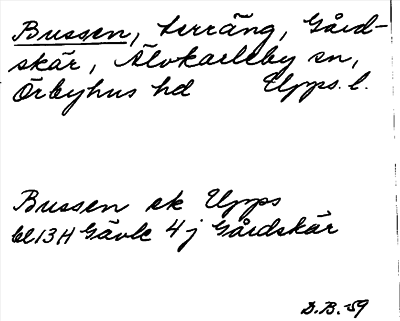 Bussen, terräng, Gård-
skär, Älvkarleby sn,
Örbyhus hd Upps. l.
Bussen ek Upps
bl 13 H Gävle 4 j Gårdskär
D.B. -59